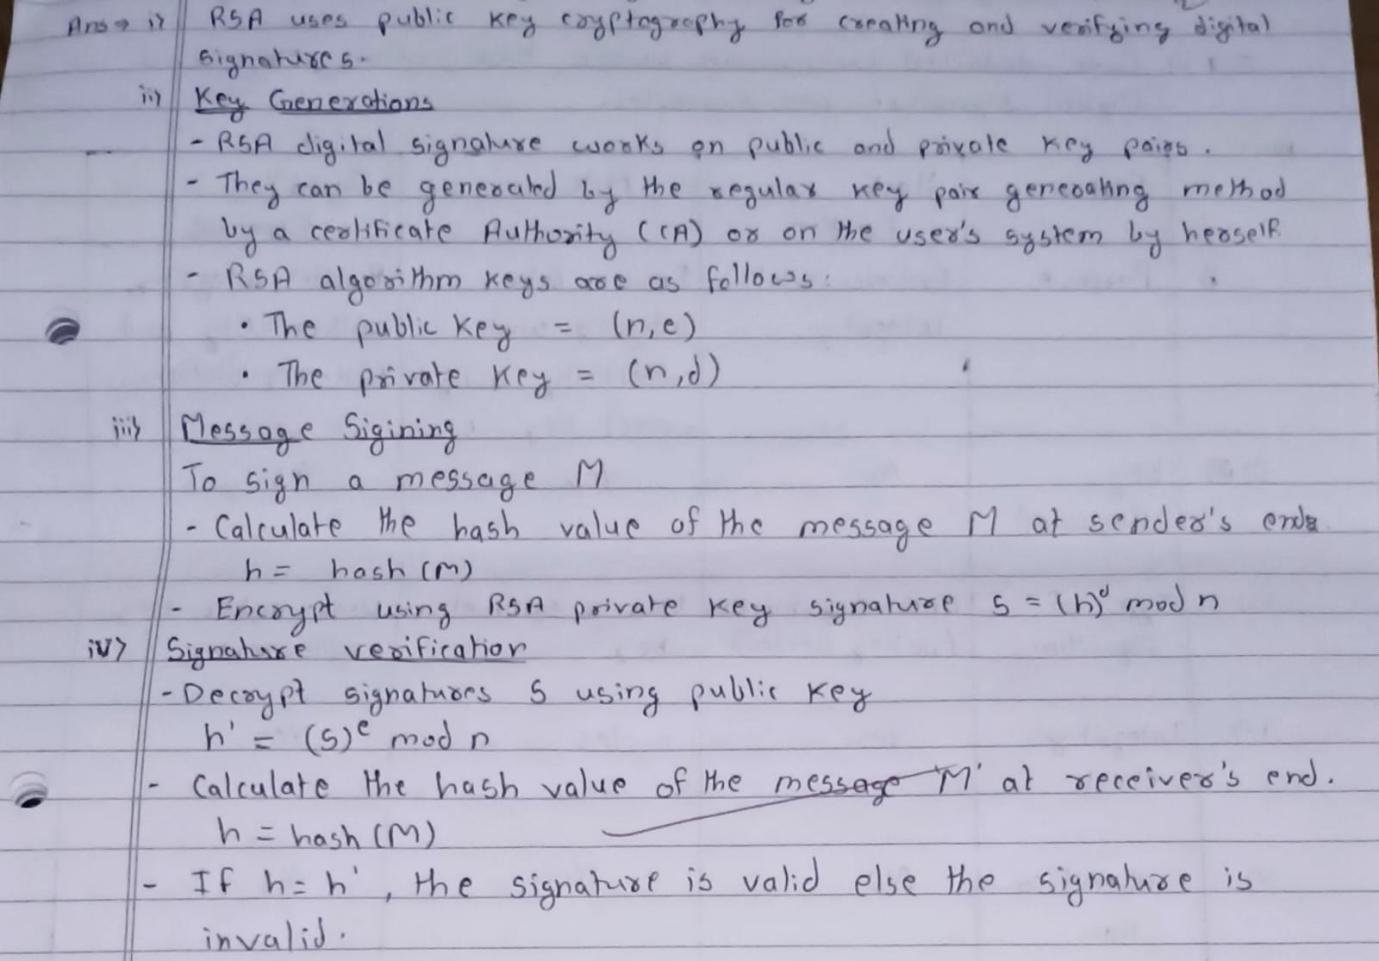 Ans → i) RSA uses public key cryptography for creating and verifying digital
signatures.
ii) Key Generations
- RSA digital signature works on public and private key pairs.
- They can be generated by the regular key pair generating method
by a certificate Authority (CA) or on the user's system by herself.
- RSA algorithm keys are as follows:
• The public key = (n,e)
• The private key = (n,d)
iii) Message Sigining
To sign a message M
- Calculate the hash value of the message M at sender's end
h = hash (M)
- Encrypt using RSA private key signature S = (h)^d mod n
iv) Signature verification
- Decrypt signatures S using public key
h' = (S)^e mod n
- Calculate the hash value of the message M' at receiver's end.
h = hash (M)
- If h = h', the signature is valid else the signature is
invalid.